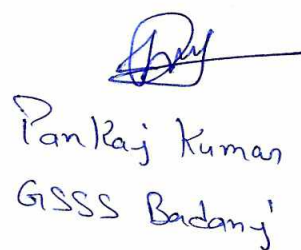 Pankaj Kumar
GSSS Badani